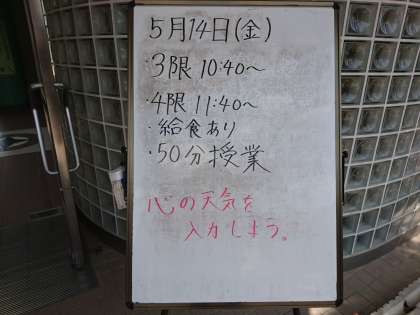 5月14日(金)
・3限 10:40～
・4限 11:40～
・給食あり
・50分授業
心の天気を
入力しよう。